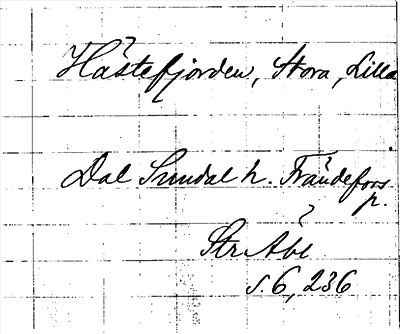 Hästefjorden, Stora, Lilla
Dal Sundal h. Frändefors
p.
Str Åbe
s. 6, 236